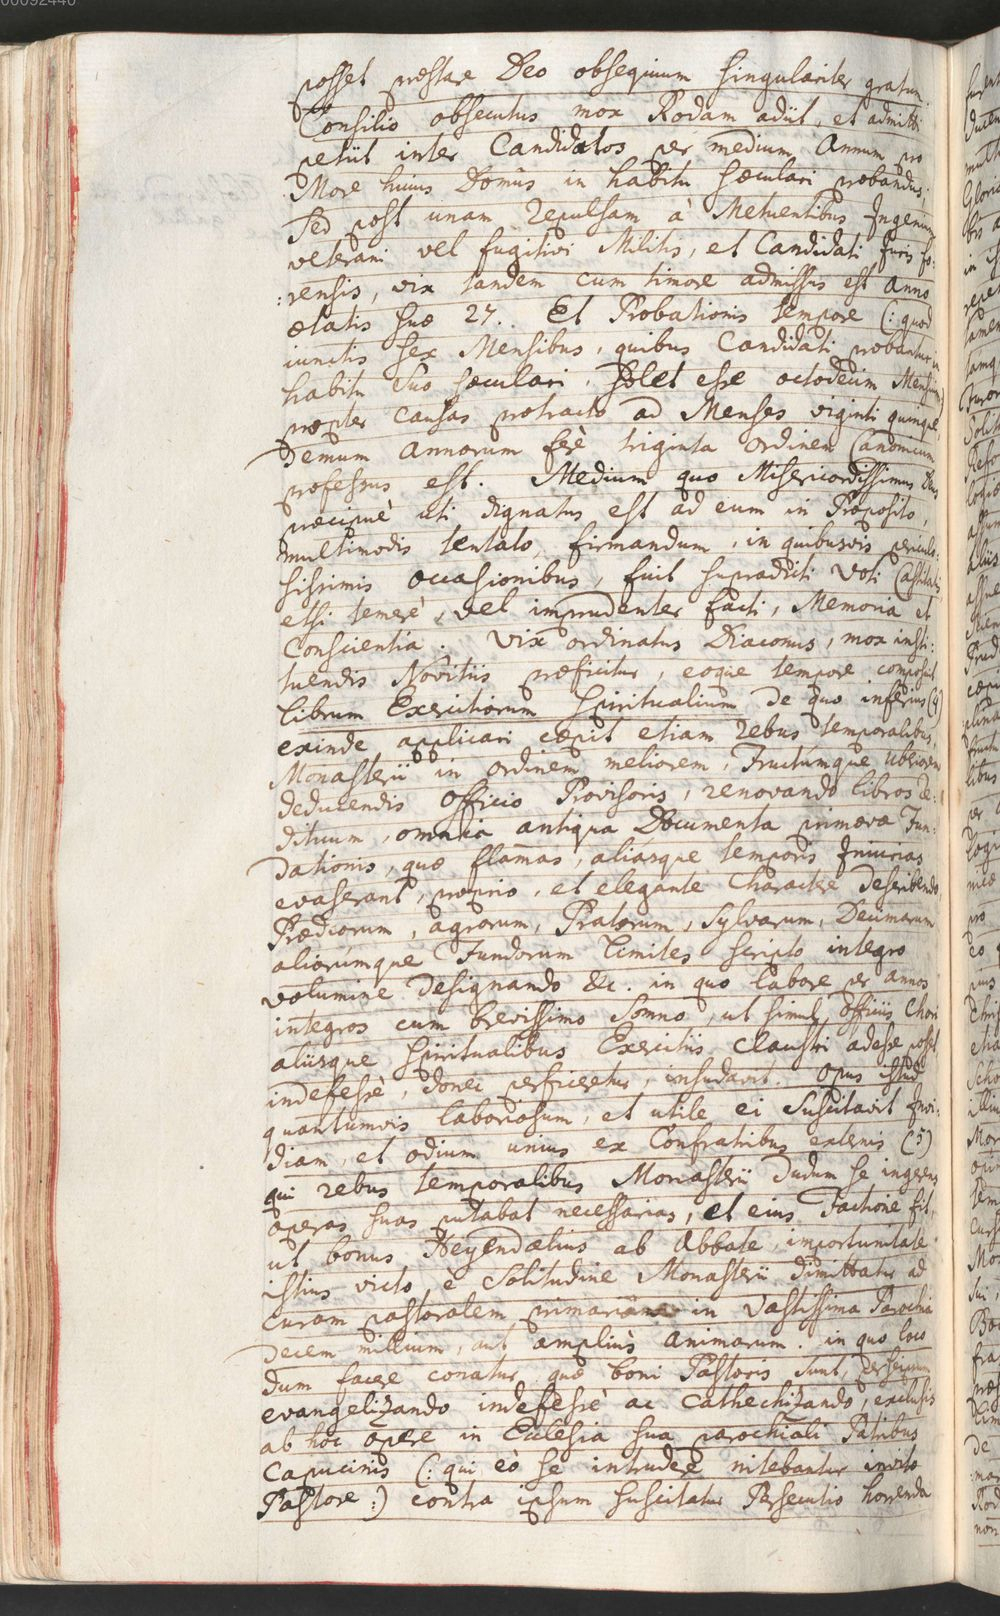 posset præstare Deo obsequium singulariter gratum
Consilio obsecutus mox Rodam adiit, et admitti
petiit inter Candidatos per medium Annum pro
More huius Domûs in habitu sæculari probandus,
Sed post unam repulsam à Metuentibus Ingenium
veterani vel fugitivi Militis, et Candidati Juris fo:
:rensis, vix tandem cum timore admissus est anno
ætatis suæ 27. Et Probationis tempore (: quod
iunctis sex Mensibus, quibus Candidati probantur in
habitu suo sæculari, solet esse octodecim Mensium)
propter causas protracto ad Menses viginti quinque,
Demum annorum ferè triginta ordinem Canonicum
professus est. Medium quo Misericordissimus Deus
præcipuè uti dignatus est ad eum in Proposito,
multimodis tentato, firmandum, in quibusvis periculo:
sissimis occasionibus, fuit supradicti voti Castitatis
etsi temerè, vel imprudenter facti, Memoria et
Conscientia. Vix ordinatus Diaconus, mox insti:
tuendis Novitiis præficitur, eoque tempore composuit
librum Exercitiorum spiritualium de quo inferius (4)
exinde applicari cœpit etiam rebus temporalibus,
Monasterii in ordinem meliorem, Fructumque uberiorem
deducendis officio Provisoris, renovando libros re:
dituum, omnia antiqua Documenta primæva Fun:
dationis, quæ flamas, aliasque temporis Iniurias
evaserant, proprio, et elegante Charactere describendo,
Prædiorum, agrorum, Pratorum, Sylvarum, Decimarum
aliorumque Fundorum limites scripto integro
volumine designando &c. in quo labore per annos
integros cum brevissimo somno, ut simul officiis Chori
aliisque spiritualibus Exercitiis claustri adesse posset
indefessè, donec perficeretur, insudavit. Opus istud
quantumvis laboriosum, et utile ei suscitavit Invi:
diam, et odium unius ex Confratribus externis (5)
qui rebus temporalibus Monasterii dudum se ingerens
operas suas putabat necessarias, et eius Factione fit,
ut bonus Heyendalius ab Abbate, importunitate
istius victo è solitudine Monasterii dimittatur ad
curam pastoralem primariam in vastissima Parochia
decem millium, aut ampliùs animarum. in quo loco
dum facere conatur quæ boni Pastoris sunt, per seipsum
evangelizando indefessè ac Cathechizando, exclusis
ab hoc opere in Ecclesia sua parochiali Patribus
Capucinis (: qui eò se intrudere nitebantur invito
Pastore :) contra ipsum suscitatur Persecutio horrenda